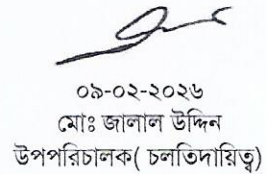 ০৯-০২-২০২৬
মোঃ জালাল উদ্দিন
উপপরিচালক( চলতিদায়িত্ব)